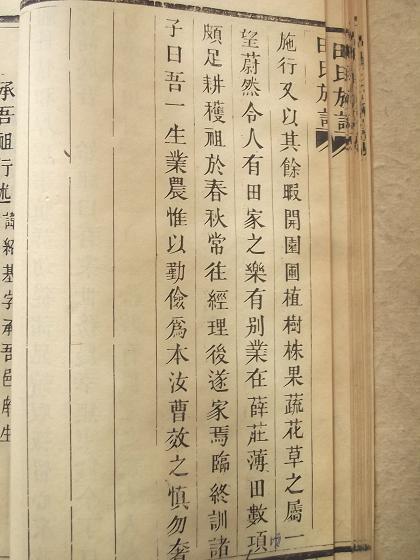 田氏族譜
施行又以其餘暇開園圃植樹株果蔬花草之屬一
望蔚然令人有田家之樂有别業在薛莊薄田數項
頗足耕穫祖於春秋常往經理後遂家焉臨終訓諸
子曰吾一生業農惟以勤儉爲本汝曹效之慎勿奢
承吾祖行述諱紹基字承吾邑庠生